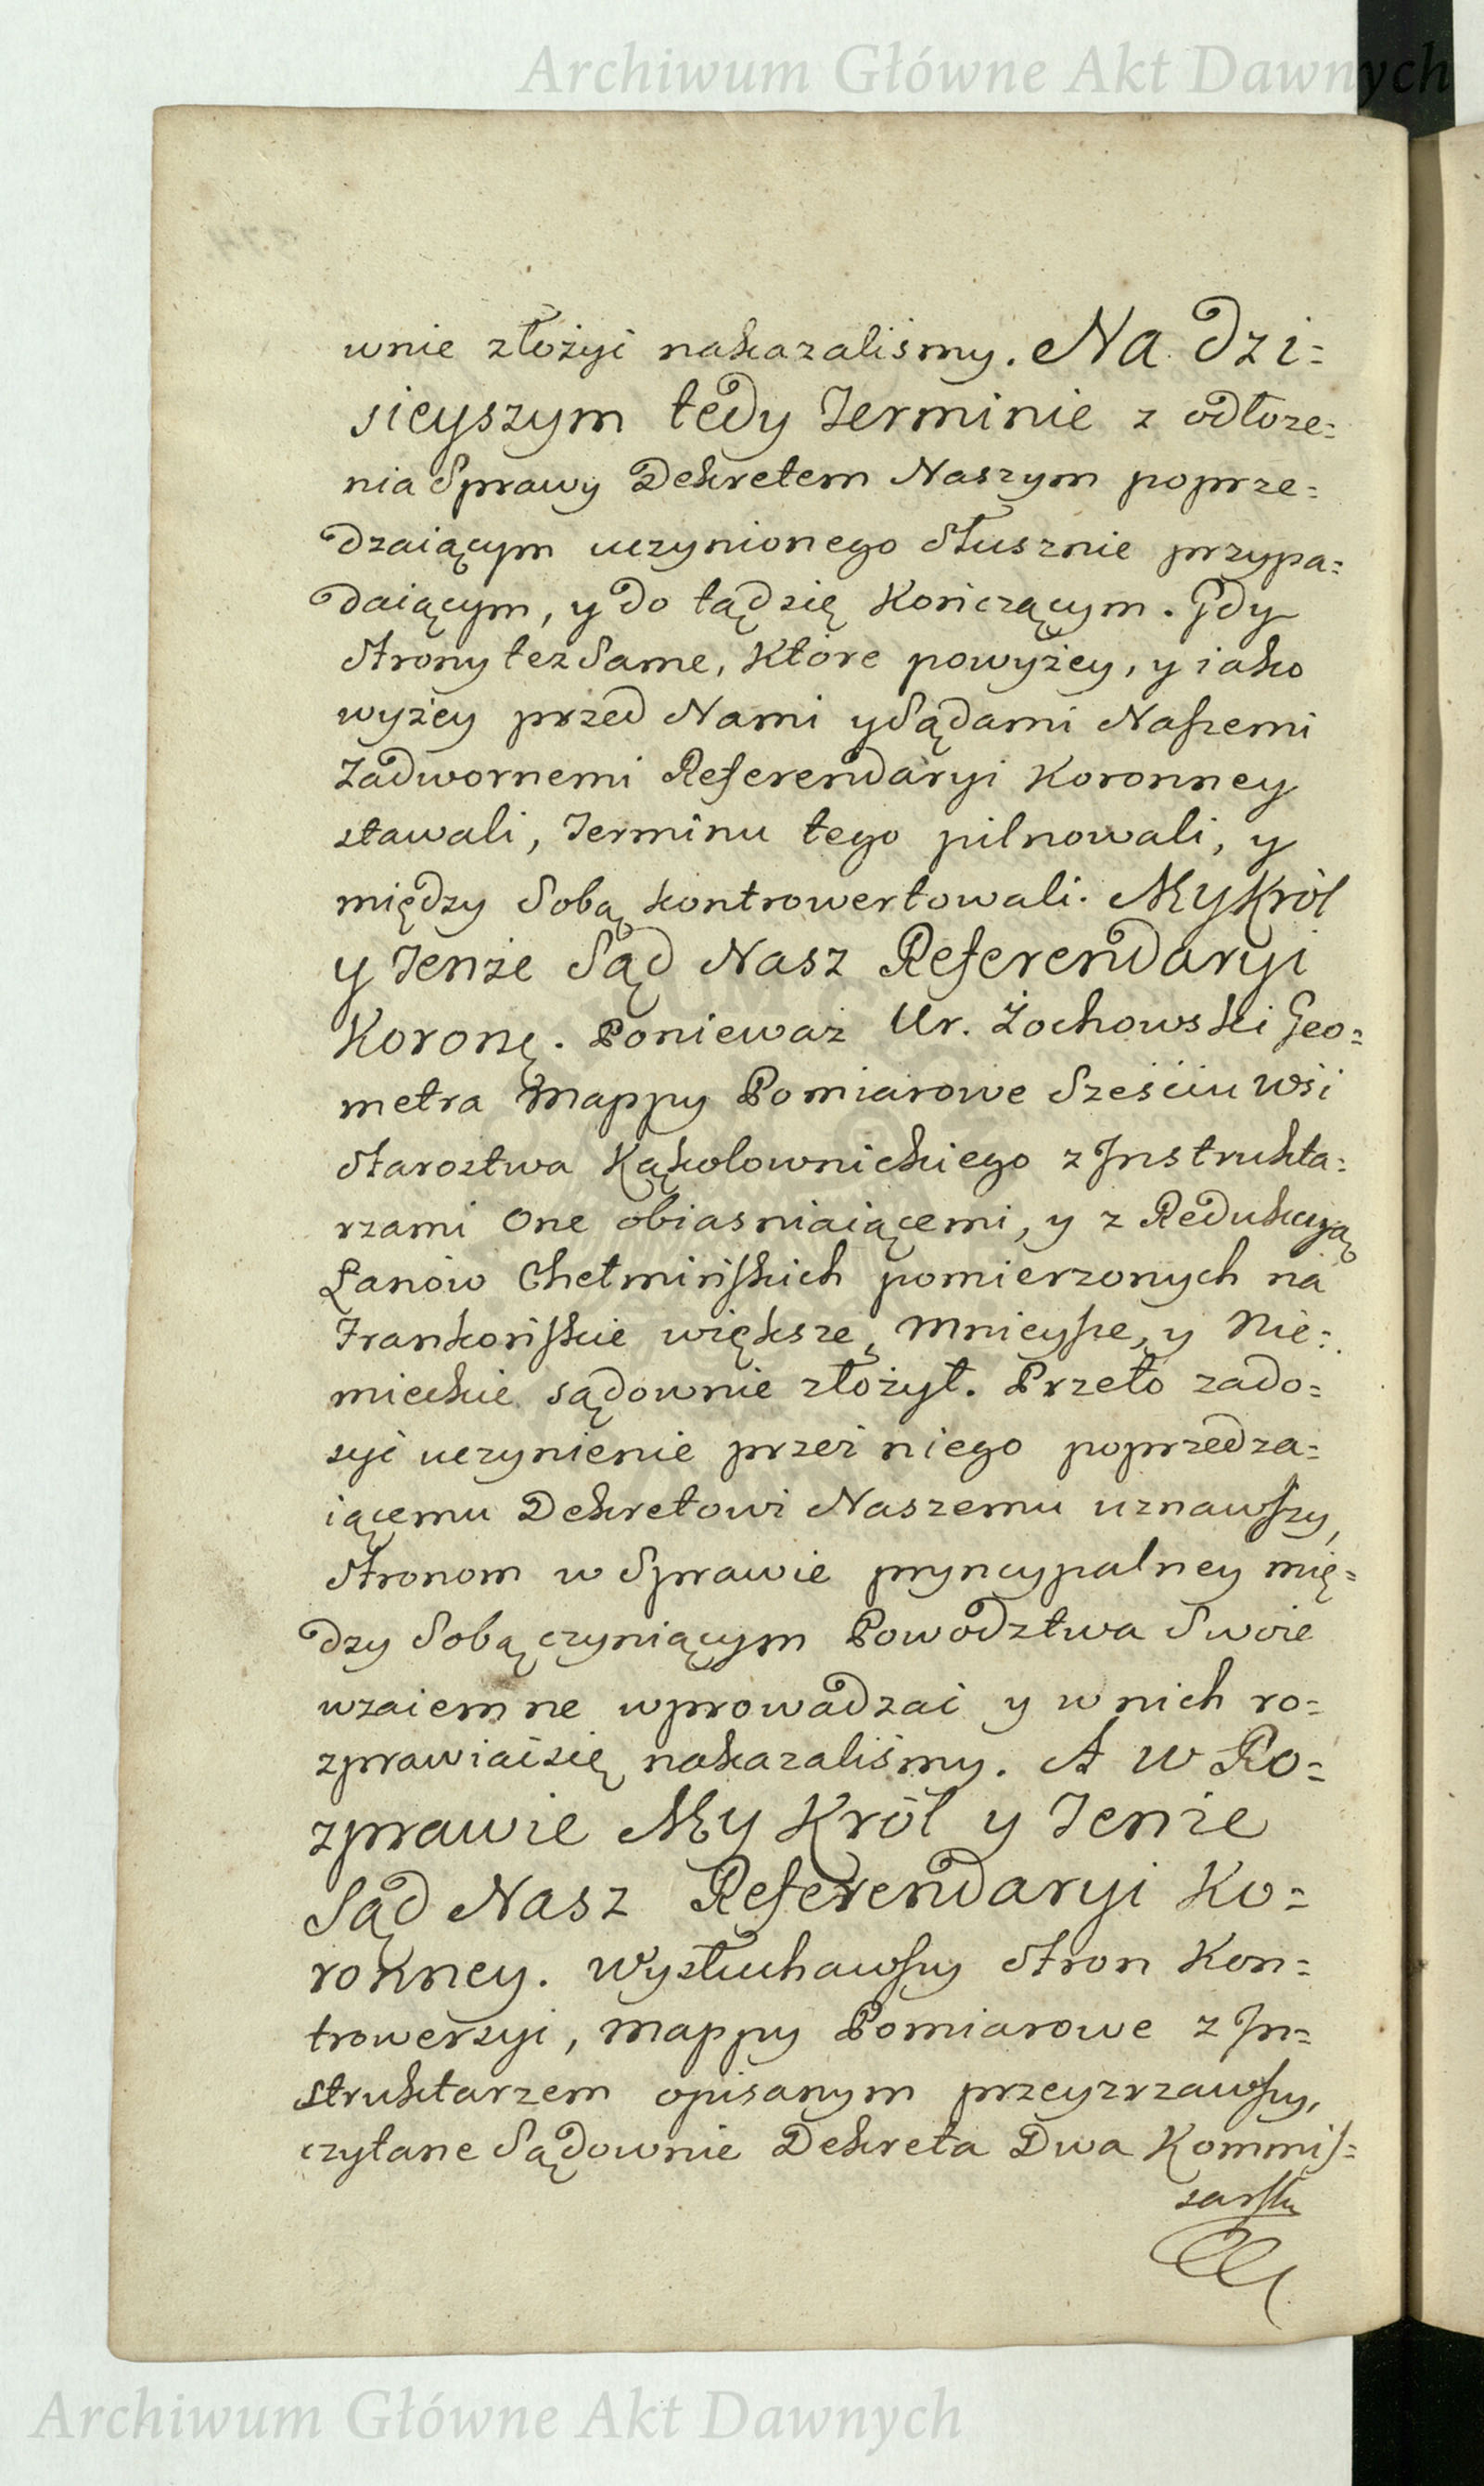 Archiwum Główne Akt Dawnych
wnie złożyć nakazaliśmy. Na dzi=
sieyszym tedy Terminie z odłoże=
nia Sprawy Dekretem Naszym poprze=
dzaiącym uczynionego Słusznie przypa=
daiącym, y do tąd się Kończącym. Gdy
Strony też Same, Które powyżey, y iako
wyżey przed Nami y Sądami Naszemi
Zadwornemi Referendaryi Koronney
stawali, Terminu tego pilnowali, y
między Sobą kontrowertowali. My Król
y Tenże Sąd Nasz Referendaryi
Koronę. Ponieważ Ur. Żochowski Geo=
metra Mappy Pomiarowe Sześciu Wsi
Starostwa Kąkolownickiego z Instrukta=
rzami One obiasniaiącemi, y z Redukcyą
Łanów Chełmińskich pomierzonych na
Frankońskie większe, Mnieysze, y Nie=
mieckie sądownie złożył. Przeto zado=
syć uczynienie przez niego poprzedza=
iącemu Dekretowi Naszemu uznawszy,
Stronom w Sprawie pryncypalney mię=
dzy Sobą czyniącym Powodztwa Swoie
wzaiemne wprowadzać y w nich ro=
zprawiać się nakazaliśmy. A w Ro=
zprawie My Król y Tenże
Sąd Nasz Referendaryi Ko=
ronney. Wysłuchawszy Stron Kon=
trowersyi, Mappy Pomiarowe z In=
struktarzem opisanym przeyzrzawszy,
czytane Sądownie Dekreta Dwa Kommis=
sarsk
Archiwum Główne Akt Dawnych